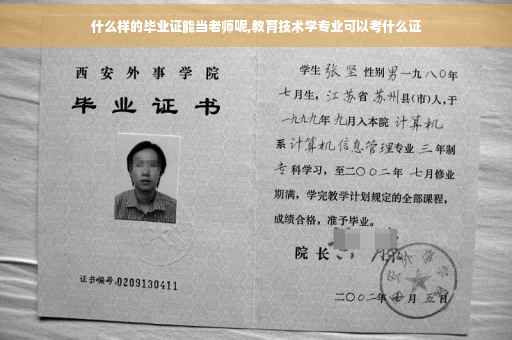 什么样的毕业证能当老师呢,教育技术学专业可以考什么证
西安外事学院
毕业证书
证书编号:0209130411
学生张坚性别男一九八〇年
七月生,江苏省苏州县(市)人,于
一九九九年九月入本院计算机
系计算机信息管理专业三年制
专科学习,至二〇〇二年七月修业
期满,学完教学计划规定的全部课程,
成绩合格,准予毕业。
院长
二〇〇二年七月五日